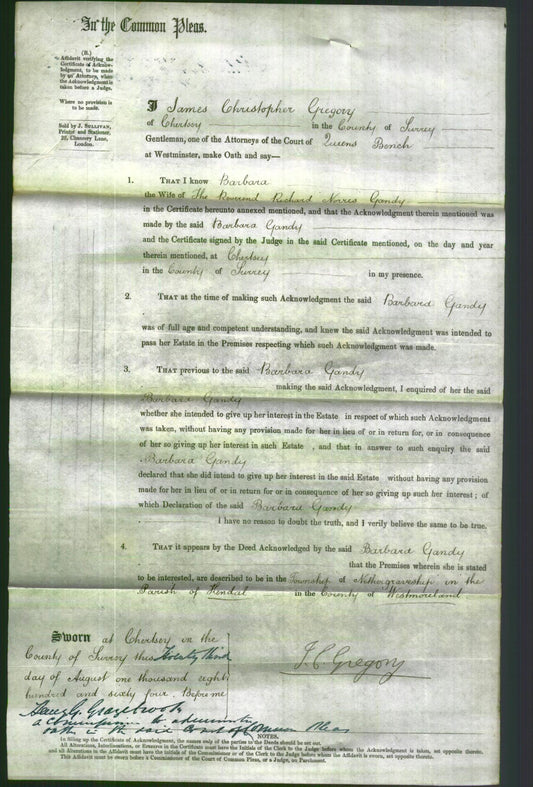 In the Common Pleas.
(B.)
Affidavit verifying the
Certificate of Acknow-
ledgment, to be made
by an Attorney, when
the Acknowledgment is
taken before a Judge.
Where no provision is
to be made.
Sold by J. SULLIVAN,
Printer and Stationer,
Chancery Lane,
London.
I James Christopher Gregory
of Chertsey in the County of Surrey
Gentleman, one of the Attorneys of the Court of Queens Bench
at Westminster, make Oath and say—
1. THAT I know Barbara
the Wife of The Reverend Richard Norris Gandy
in the Certificate hereunto annexed mentioned, and that the Acknowledgment therein mentioned was
made by the said Barbara Gandy
and the Certificate signed by the Judge in the said Certificate mentioned, on the day and year
therein mentioned, at Chertsey
in the County of Surrey in my presence.
2. THAT at the time of making such Acknowledgment the said Barbara Gandy
was of full age and competent understanding, and knew the said Acknowledgment was intended to
pass her Estate in the Premises respecting which such Acknowledgment was made.
3. THAT previous to the said Barbara Gandy
making the said Acknowledgment, I enquired of her the said
Barbara Gandy
whether she intended to give up her interest in the Estate in respect of which such Acknowledgment
was taken, without having any provision made for her in lieu of or in return for, or in consequence
of her so giving up her interest in such Estate , and that in answer to such enquiry the said
Barbara Gandy
declared that she did intend to give up her interest in the said Estate without having any provision
made for her in lieu of or in return for or in consequence of her so giving up such her interest; of
which Declaration of the said Barbara Gandy
I have no reason to doubt the truth, and I verily believe the same to be true.
4. THAT it appears by the Deed Acknowledged by the said Barbara Gandy
that the Premises wherein she is stated
to be interested, are described to be in the Township of Nethergraveship in the
Parish of Kendal in the County of Westmoreland
Sworn at Chertsey in the
County of Surrey this Twenty third
day of August one thousand eight
hundred and sixty four. Before me
J. C. Gregory
Grazebrook
a Commissioner to administer
oaths in the said Court of Common Pleas
NOTES.
In filling up the Certificate of Acknowledgment, the names only of the parties to the Deeds should be set out.
All Alterations, Interlineations, or Erasures in the Certificate must have the Initials of the Clerk to the Judge before whom the Acknowledgment is taken, set opposite thereto,
and all Alterations in the Affidavit must have the Initials of the Commissioner or of the Clerk to the Judge before whom the Affidavit is sworn, set opposite thereto.
This Affidavit must be sworn before a Commissioner of the Court of Common Pleas, or a Judge, on Parchment.